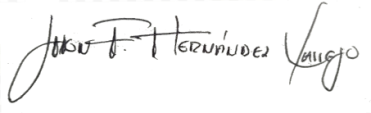 Juan P. Hernández Vallejo